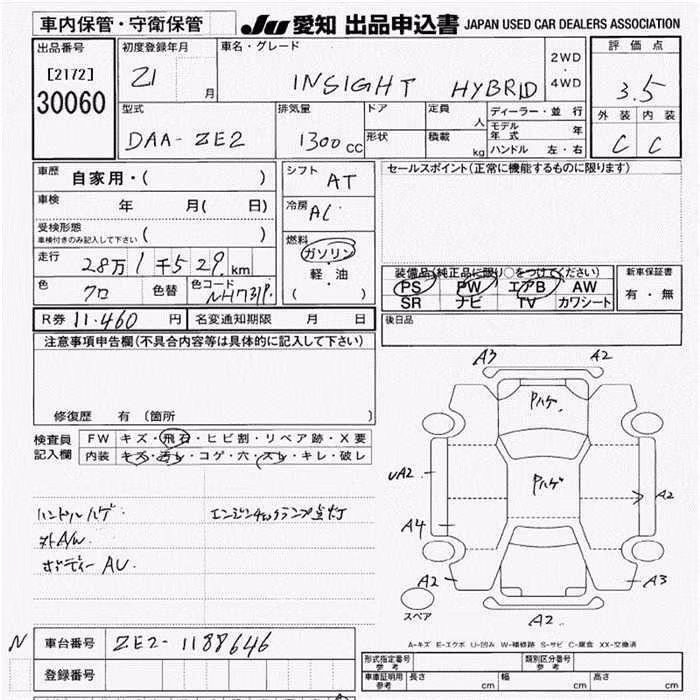 車内保管・守衛保管 JU 愛知 出品申込書 JAPAN USED CAR DEALERS ASSOCIATION
出品番号 初度登録年月 車名・グレード 2WD ・ 4WD 評価点
[2172] 21 月 INSIGHT HYBRID 3.5
30060 外装 内装
型式 排気量 ドア 定員 人 ディーラー・並行
DAA-ZE2 1300 CC 形状 積載 kg モデル年式 年 C C
ハンドル 左・右
車歴 自家用・( ) シフト AT セールスポイント(正常に機能するものに限ります)
車検 年 月( 日) 冷房 AC
受検形態 ( )
車検付きのみ記入して下さい
走行 28万1千529km 燃料 ガソリン・軽・油 ( ) 装備品(純正品に限り○をつけてください) 新車保証書
色 クロ 色替 色コード NH731P. PS PW エアB AW 有・無
SR ナビ TV カワシート
R券 11.460 円 名変通知期限 月 日 後日品
注意事項申告欄(不具合内容等は具体的に記入して下さい)
A3 A2
Pハゲ.
修復歴 有 〔箇所
検査員記入欄 FW キズ・飛石・ヒビ割・リペア跡・X要
内装 キズ・汚レ・コゲ・穴・スレ・キレ・破レ
UA2 Pハゲ A2
ハンドルハゲ. エンジンチェックランプ点灯
A4
外A/W
ボディー AU.
A2 A3
スペア A2
N 車台番号 ZE2-1188646
A-キズ E-エクボ U-凹み W-補修跡 S-サビ C-腐食 XX-交換済
登録番号 形式指定番号 参考 類別区分番号 参考
車庫証明用参考 長さ cm 幅 cm 高さ cm